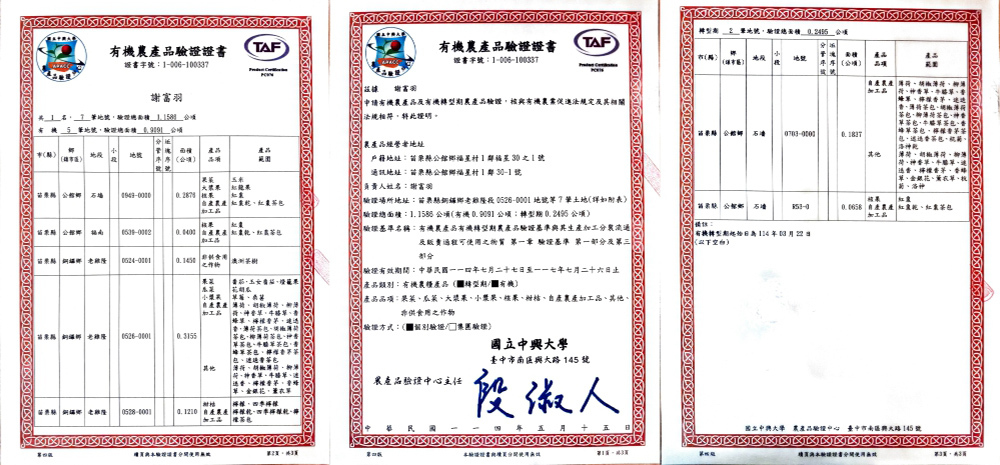 國立中興大學
APACC
農產品驗證中心
有機農產品驗證證書
證書字號：1-006-100337
TAF
Product Certification
PC076
謝富羽
共 1 名， 7 筆地號，驗證總面積 1.1586 公頃
有 機 5 筆地號，驗證總面積 0.9091 公頃
市(縣) 鄉(鎮市區) 地段 小段 地號 分管序號 坵塊序號 面積(公頃) 產品品項 產品範圍
苗栗縣 公館鄉 石墻 0949-0000 0.2876
莢菜 玉米
大漿果 紅龍果
核果 紅棗
自產農產加工品 紅棗乾、紅棗茶包
苗栗縣 公館鄉 誌南 0539-0002 0.0400
核果 紅棗
自產農產加工品 紅棗乾、紅棗茶包
苗栗縣 銅鑼鄉 老雞隆 0524-0001 0.1450 非供食用之作物 澳洲茶樹
苗栗縣 銅鑼鄉 老雞隆 0526-0001 0.3155
果菜
瓜菜
小漿果 草莓、桑葚
自產農產加工品
薄荷、胡椒薄荷、柳薄
荷、神香草、牛膝草、香
蜂草、檸檬香茅、迷迭
香、薄荷茶包、胡椒薄荷
茶包、柳薄荷茶包、神香
草茶包、牛膝草茶包、香
蜂草茶包、檸檬香茅茶
包、迷迭香茶包
其他
薄荷、胡椒薄荷、柳薄
荷、神香草、牛膝草、迷
迭香、檸檬香茅、香蜂
草、金銀花、薰衣草
苗栗縣 銅鑼鄉 老雞隆 0528-0001 0.1210
柑桔 檸檬、四季檸檬
自產農產加工品 檸檬乾、四季檸檬乾、檸檬茶包
第四版 續頁與本驗證證書分開使用無效 第2頁，共3頁
國立中興大學
APACC
農產品驗證中心
有機農產品驗證證書
證書字號：1-006-100337
TAF
Product Certification
PC076
茲據 謝富羽
申請有機農產品及有機轉型期農產品驗證，經與有機農業促進法規定及其相關
法規相符，特此證明。
農產品經營者地址
戶籍地址：苗栗縣公館鄉福星村1鄰福星30之1號
通訊地址：苗栗縣公館鄉福星村1鄰30-1號
負責人姓名：謝富羽
驗證場所地址：苗栗縣銅鑼鄉老雞隆段0526-0001地號等7筆土地(詳如附表)
驗證總面積：1.1586公頃(有機0.9091公頃；轉型期0.2495公頃)
驗證基準名稱：有機農產品有機轉型期農產品驗證基準與其生產加工分裝流通
及販賣過程可使用之物質 第一章 驗證基準 第一部分及第三
部分
驗證有效期間：中華民國一一四年七月二十七日至一一七年七月二十六日止
產品類別：有機農糧產品 (■轉型期/■有機)
產品品項：莢菜、瓜菜、大漿果、小漿果、核果、柑桔、自產農產加工品、其他、
非供食用之作物
驗證方式：(■個別驗證/□集團驗證)
國立中興大學
臺中市南區興大路145號
農產品驗證中心主任 段淑人
中華民國一一四年五月十五日
第四版 續頁與本驗證證書分開使用無效 第1頁，共3頁
轉型期 2 筆地號，驗證總面積 0.2495 公頃
市(縣) 鄉(鎮市區) 地段 小段 地號 分管序號 坵塊序號 面積(公頃) 產品品項 產品範圍
苗栗縣 公館鄉 石墻 0703-0000 0.1837
自產農產加工品
薄荷、胡椒薄荷、柳薄
荷、神香草、牛膝草、香
蜂草、檸檬香茅、迷迭
香、薄荷茶包、胡椒薄荷
茶包、柳薄荷茶包、神香
草茶包、牛膝草茶包、香
蜂草茶包、檸檬香茅茶
包、迷迭香茶包、枇杷、
洛神乾
其他
薄荷、胡椒薄荷、柳薄
荷、神香草、牛膝草、迷
迭香、檸檬香茅、香蜂
草、金銀花、薰衣草、枇
杷、洛神
苗栗縣 公館鄉 石墻 853-0 0.0658
核果 紅棗
自產農產加工品 紅棗乾、紅棗茶包
備註：
有機轉型期起始日為114年03月22日
(以下空白)
國立中興大學 農產品驗證中心 臺中市南區興大路145號
第四版 續頁與本驗證證書分開使用無效 第3頁，共3頁